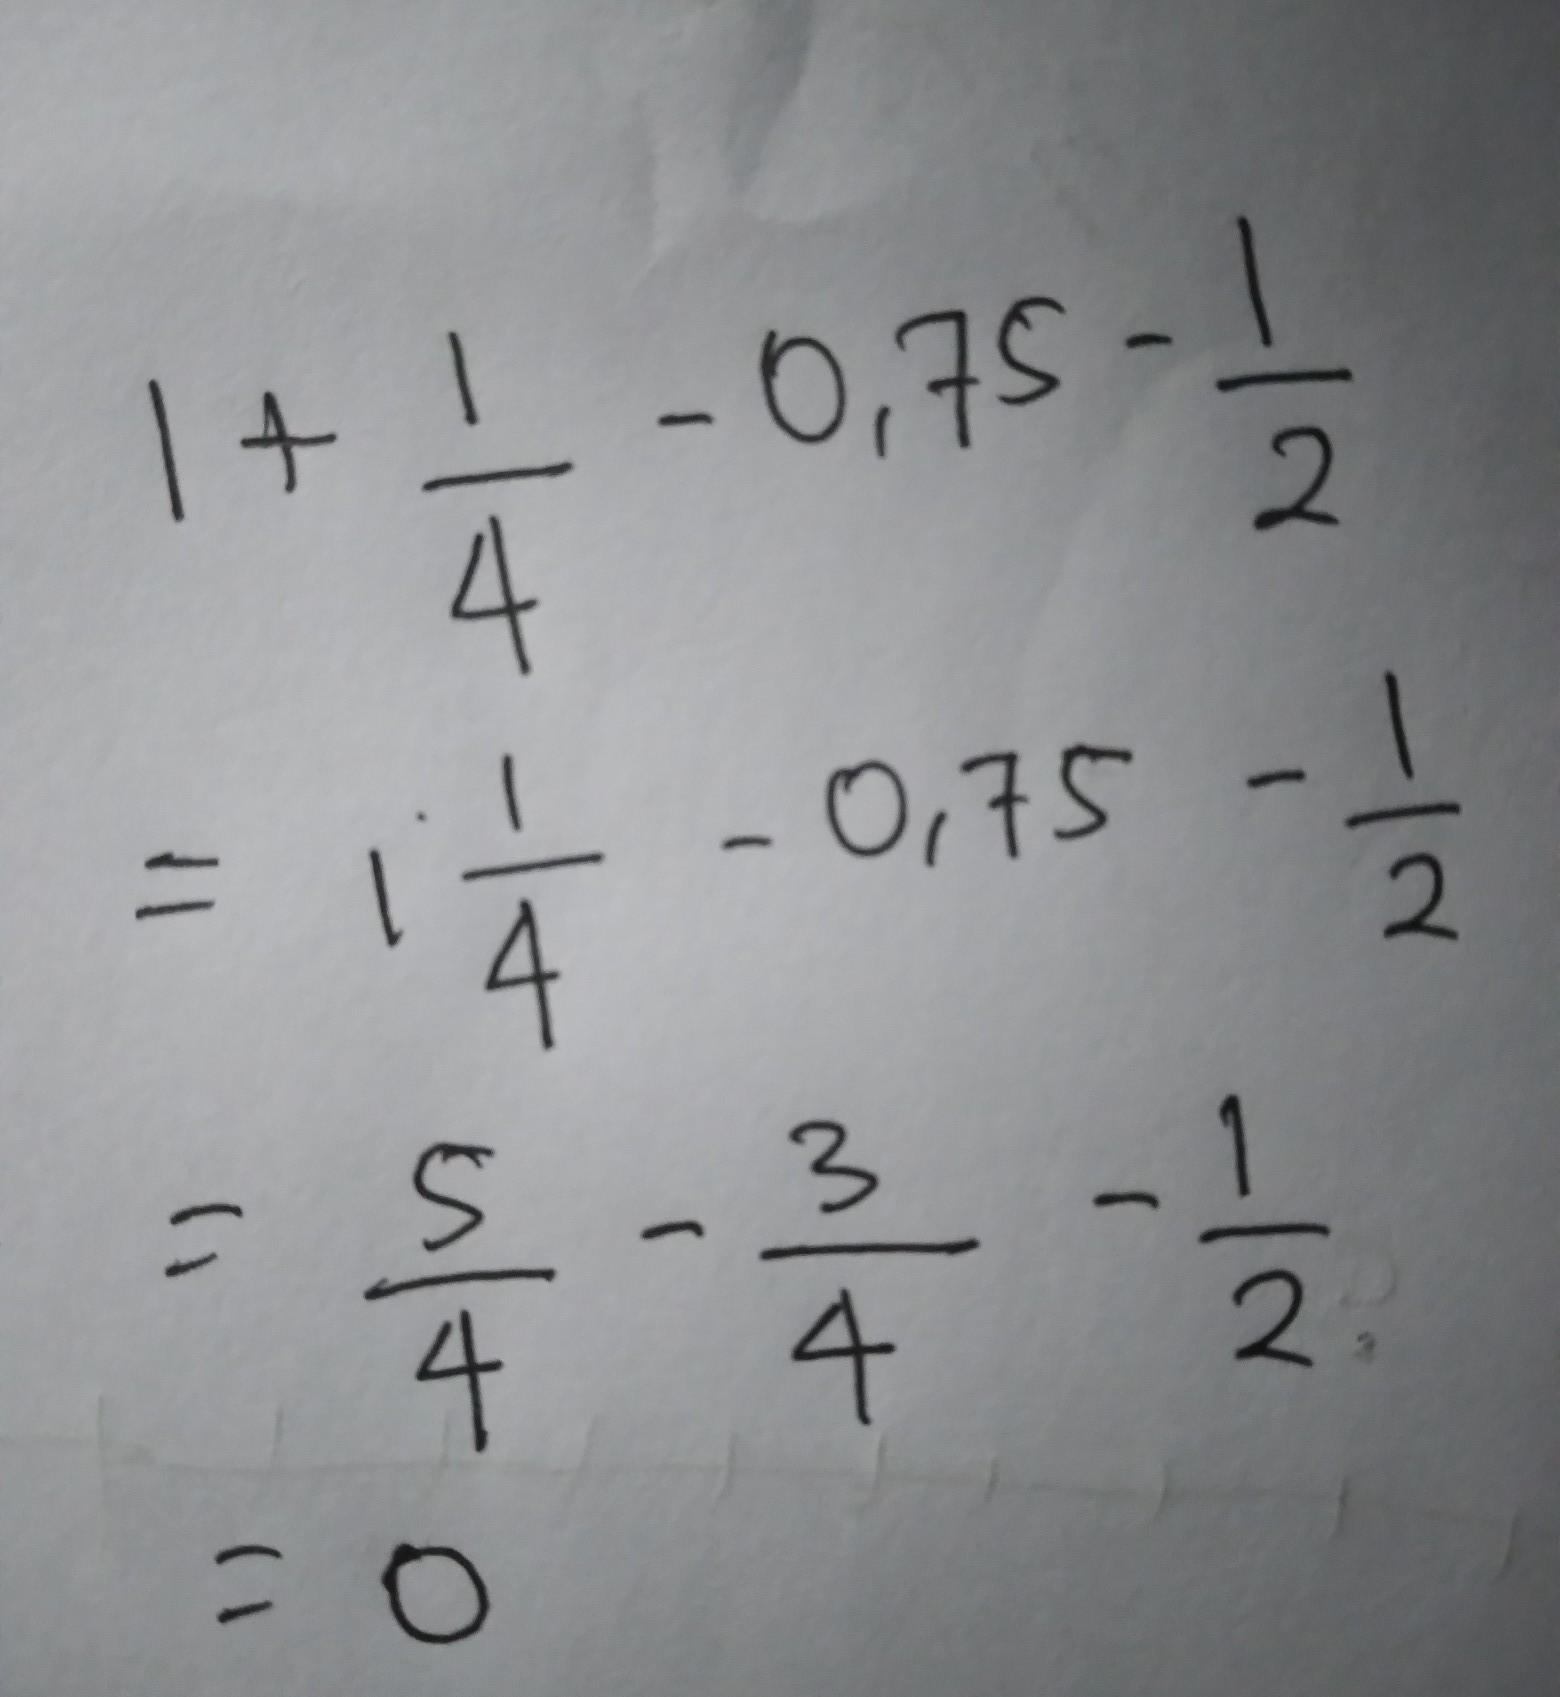 1 + 1/4 - 0,75 - 1/2
= 1 1/4 - 0,75 - 1/2
= 5/4 - 3/4 - 1/2
= 0